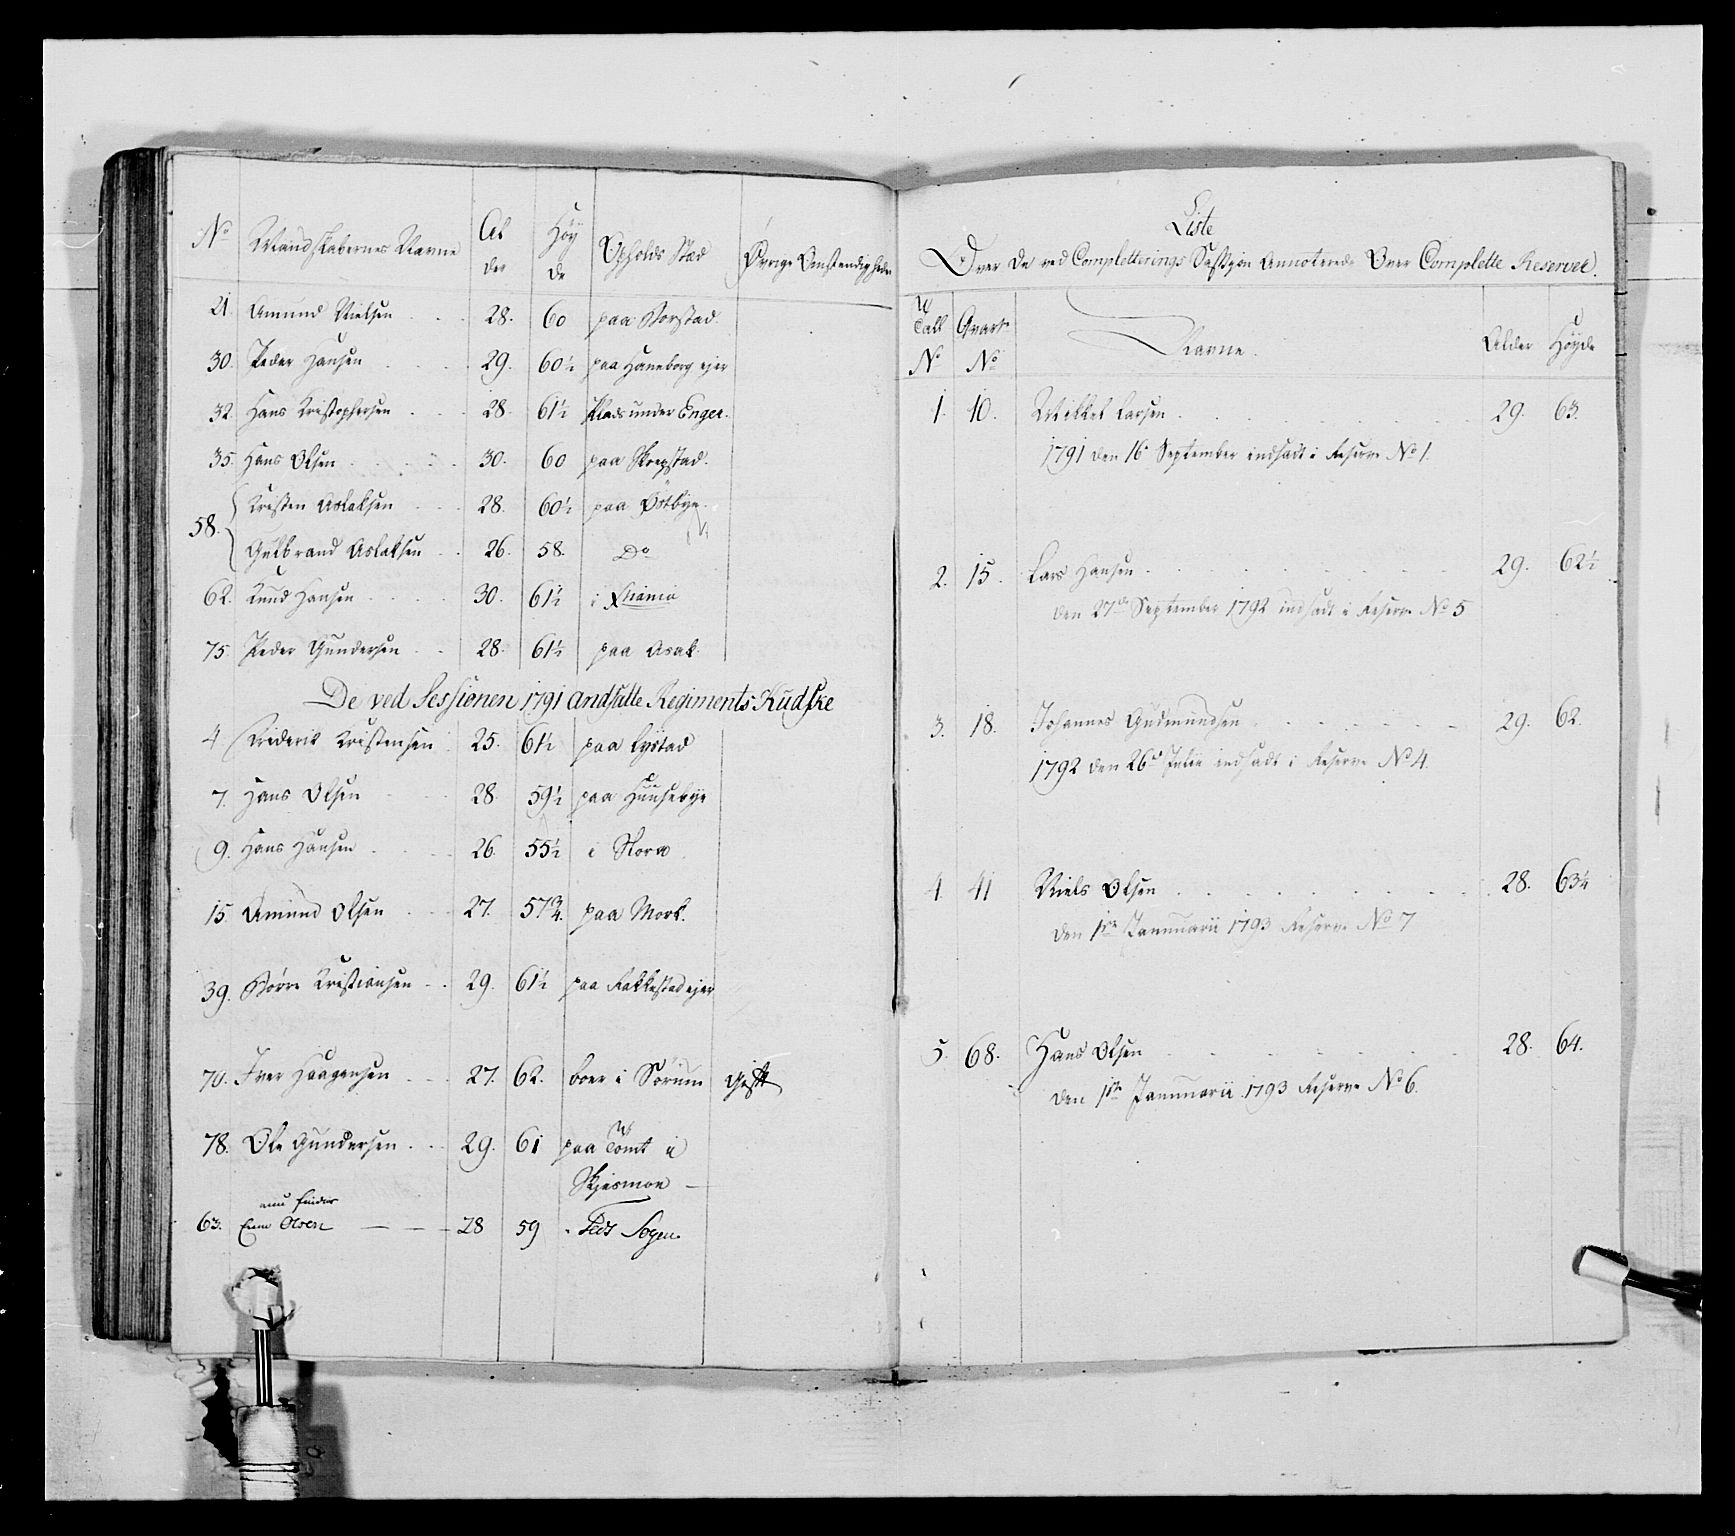 No Mandskabernes Navne Al der Høy de Opholds Stæd Øvrige Omstendigheder
21. Amund Nielsen 28. 60 paa Borstad.
30. Peder Hansen 29. 60½ paa Haneborg ejer
32. Hans Kristophersen 28. 61½ Plads under Enger.
35. Hans Olsen 30. 60 paa Skrepstad.
58. Kristen Aslaksen 28. 60½ paa Østbye.
Gulbrand Aslaksen 26. 58. Do
62. Knud Hansen 30. 61½ i Xstiania
75. Peder Gundersen 28. 61½ paa Asak.
De ved Sessionen 1791 andsatte Regiments Kudske
4 Friderik Kristensen 25. 61½ paa Lystad
7. Hans Olsen 28. 59½ paa Huusebye
9. Hans Hansen 26. 55½ i
15. Amund Olsen 27. 57¾. paa Mork.
39. Børre Kristiansen 29. 61½ paa Rakkestad ejer
70. Iver Haagensen 27. 62. boer i Sørum Gift
78. Ole Gundersen 29. 61 paa Tomt i
Skjesmoe
63. Olsen 28 59 Sogen.
Liste
Over De ved Completterings Sessjon Annoterede Over Complette Reserver.
Tall No Qvart No Navne. Alder Høyde
1. 10. Mikkel Larsen 29. 63.
1791 den 16 September indsadt i Reserve No 1.
2. 15. Lars Hansen 29. 62½
den 27de September 1792 indsadt i Reserve No 5
3. 18. Johannes Gudmundsen 29. 62.
1792 den 26d Julii indsadt i Reserve No 4.
4 41 Niels Olsen 28. 63¼
den 1ste Januarii 1793 Reserve No 7
5. 68. Hans Olsen 28. 64.
den 1ste Januarii 1793 Reserve No 6.